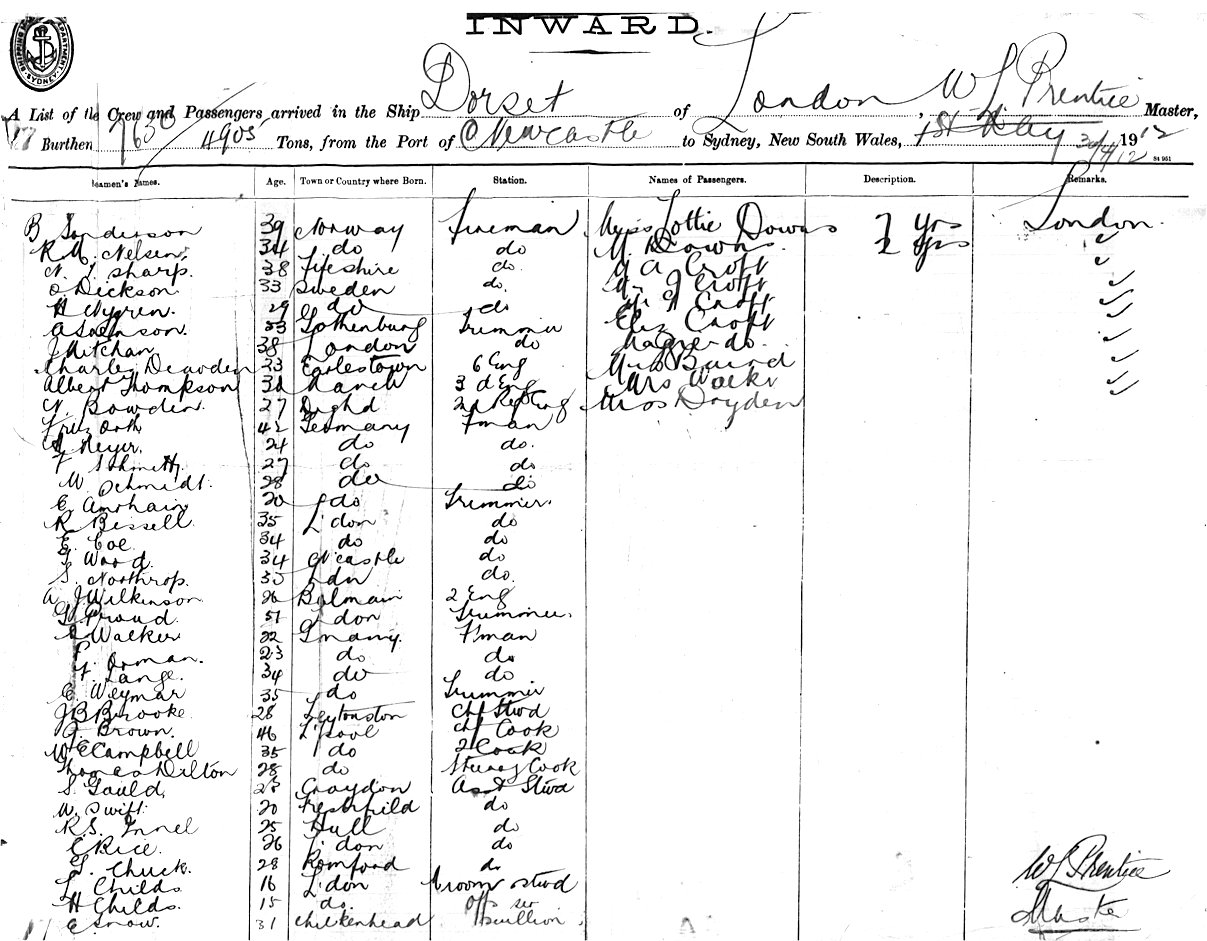 INWARD.
SYDNEY
A List of the Crew and Passengers arrived in the Ship Dorset of London, W L Prentice Master,
Burthen 7630 / 4905 Tons, from the Port of Newcastle to Sydney, New South Wales, 1st May 30/4/12 1912
Seamen's Names. Age. Town or Country where Born. Station. Names of Passengers. Description. Remarks.
B Sanderson 39 Norway Fireman Miss Lottie Downs 7 Yrs London.
R. M. Nelsen 34 do do M. Downs 2 Yrs
N. J Sharp. 38 Fifeshire do. A Croft
O Dickson 33 Sweden do. Croft
H Nyren. 29 do do Croft
A 33 Gothenburg Trimmer Eliz Croft
J Mitchan 38 London do do.
Charles Dearden 33 Earlestown 6 Eng Baird
Albert Thompson 3 d Eng Mrs
Bowden. 27 2nd Eng Dryden
Fritz Orth 42 Germany Fman
Meyer. 24 do do.
F Schmetty 27 do do
W Schmidt. 28 do do
E 20 do Trimmer.
R Bissell 35 L'don do
E. Coe 34 do do
Ward. 34 N'castle do
S. Northrop. 30 Ldn do.
A J Wilkinson 26 Balmain 2 Eng
G Proud. 51 L'don Trimmer.
Walker 22 Gmany. F'man
Orman. 23 do do
F. Lange. 34 do do
E Weymar 35 do Trimmer
J B Brooke 28 Leytonston Chf Stwd
J. Brown. 46 L'pool chf Cook
W E Campbell 35 do 2 Cook
Thomas Dilton 28 do Cook
S. Gauld, 28 Croydon Asst Stwd
W. Swift 20 do
R. S. 25 Hull do
E Rice. 26 L'don do
Chuck. 28 Romford do
L. Childs 16 L'don room stwd
H Childs. 15 do.
E Snow. 31 Chilkenhead Scullion
W L Prentice
Master